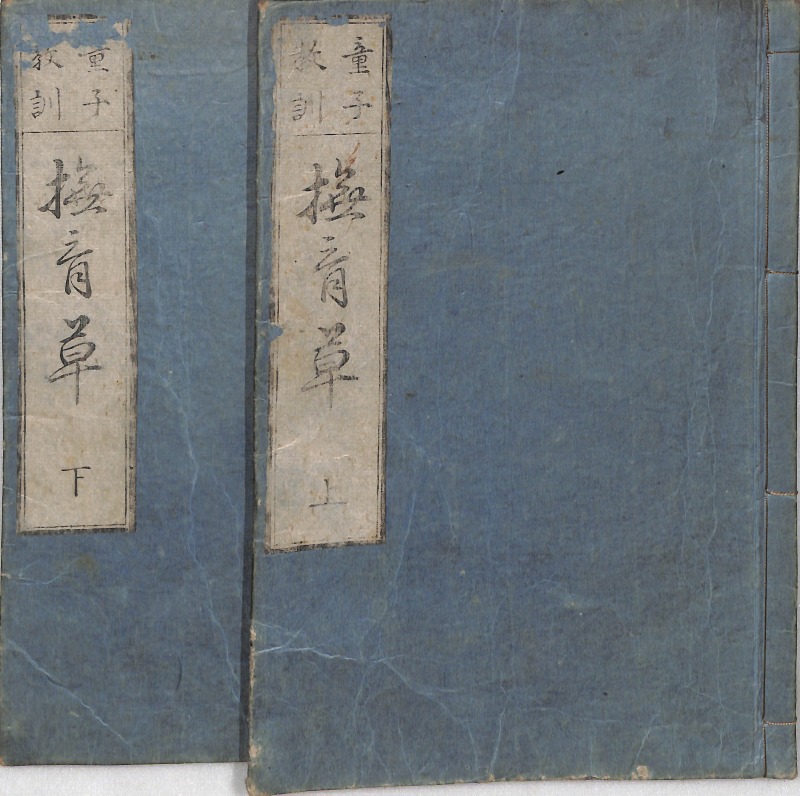 童子
教訓
撫育草
上
童子
教訓
撫育草
下